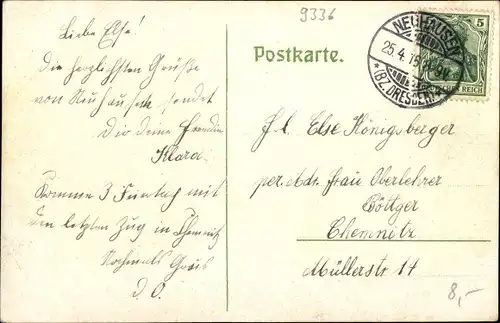 9336
Liebe Else!
Die herzlichsten Grüße
von Neuhausen sendet
Dir deine Freundin
Klara.
Komme 3 Feiertag mit
dem letzten Zug in Chemnitz
Nochmals Gruß
d. O.
Postkarte.
NEUHAUSEN
25.4.
*(BZ. DRESDEN)
5
REICH
Frl. Else Königsberger
per. Adr. Frau Oberlehrer
Böttger
Chemnitz
Müllerstr 14
8,-